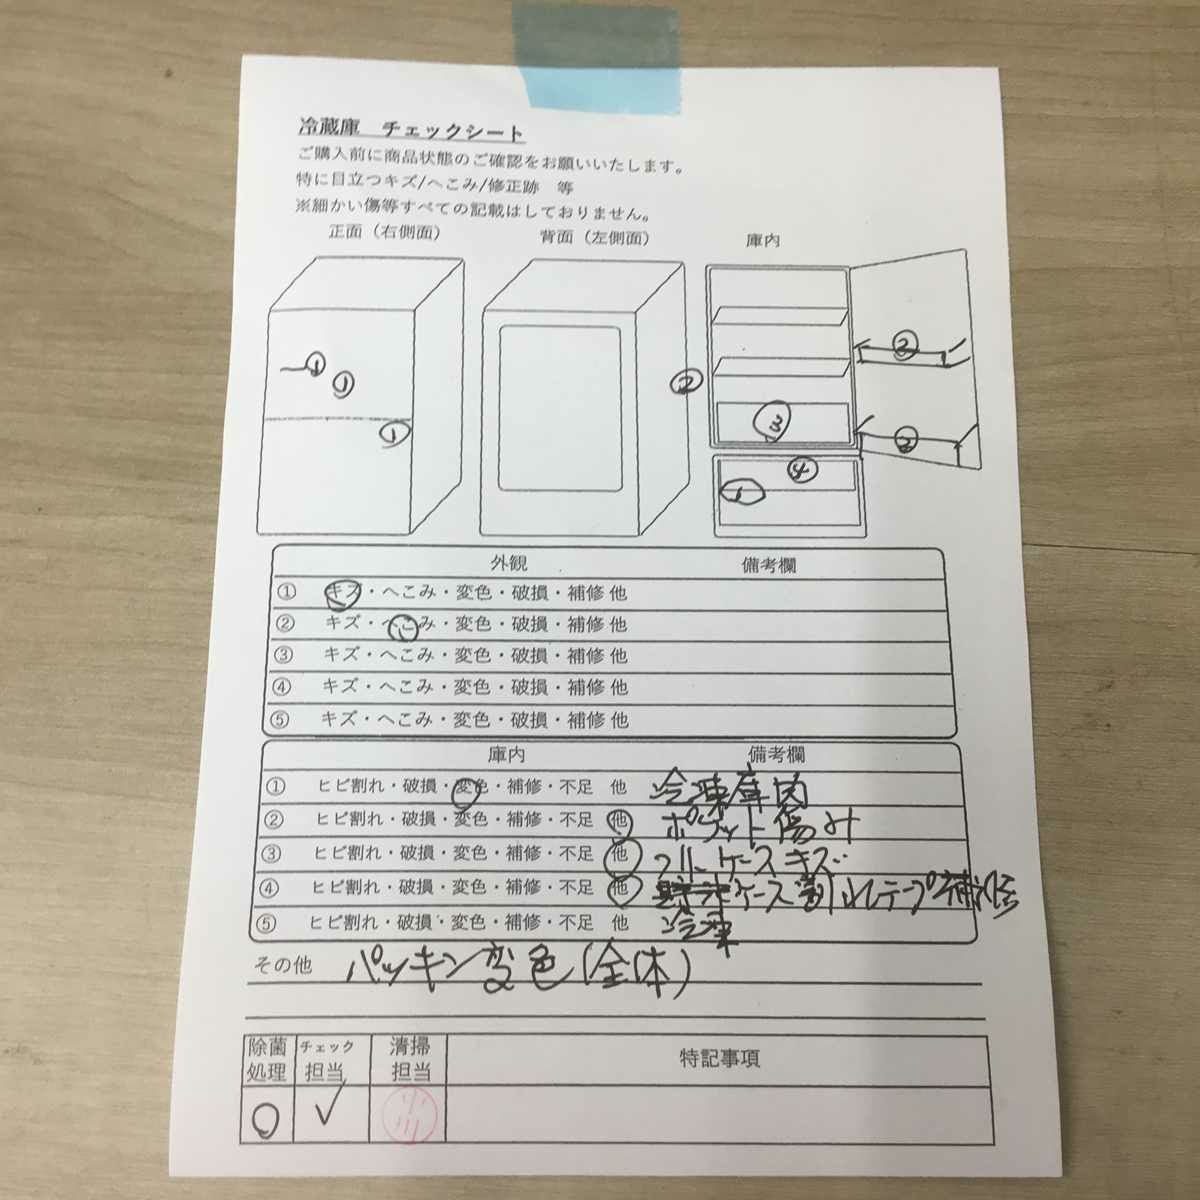 冷蔵庫　チェックシート
ご購入前に商品状態のご確認をお願いいたします。
特に目立つキズ/へこみ/修正跡　等
※細かい傷等すべての記載はしておりません。
正面（右側面）　背面（左側面）　庫内
① ① ①
②
② ② ③ ④ ①
外観　備考欄
① キズ・へこみ・変色・破損・補修 他
② キズ・へこみ・変色・破損・補修 他
③ キズ・へこみ・変色・破損・補修 他
④ キズ・へこみ・変色・破損・補修 他
⑤ キズ・へこみ・変色・破損・補修 他
庫内　備考欄
① ヒビ割れ・破損・変色・補修・不足　他　冷凍庫内
② ヒビ割れ・破損・変色・補修・不足　他　ポケット傷み
③ ヒビ割れ・破損・変色・補修・不足　他　フリーケースキズ
④ ヒビ割れ・破損・変色・補修・不足　他　ケース割れテープ補修
⑤ ヒビ割れ・破損・変色・補修・不足　他　冷凍
その他　パッキン変色(全体)
除菌処理　チェック担当　清掃担当　特記事項
○ ✓ 小川